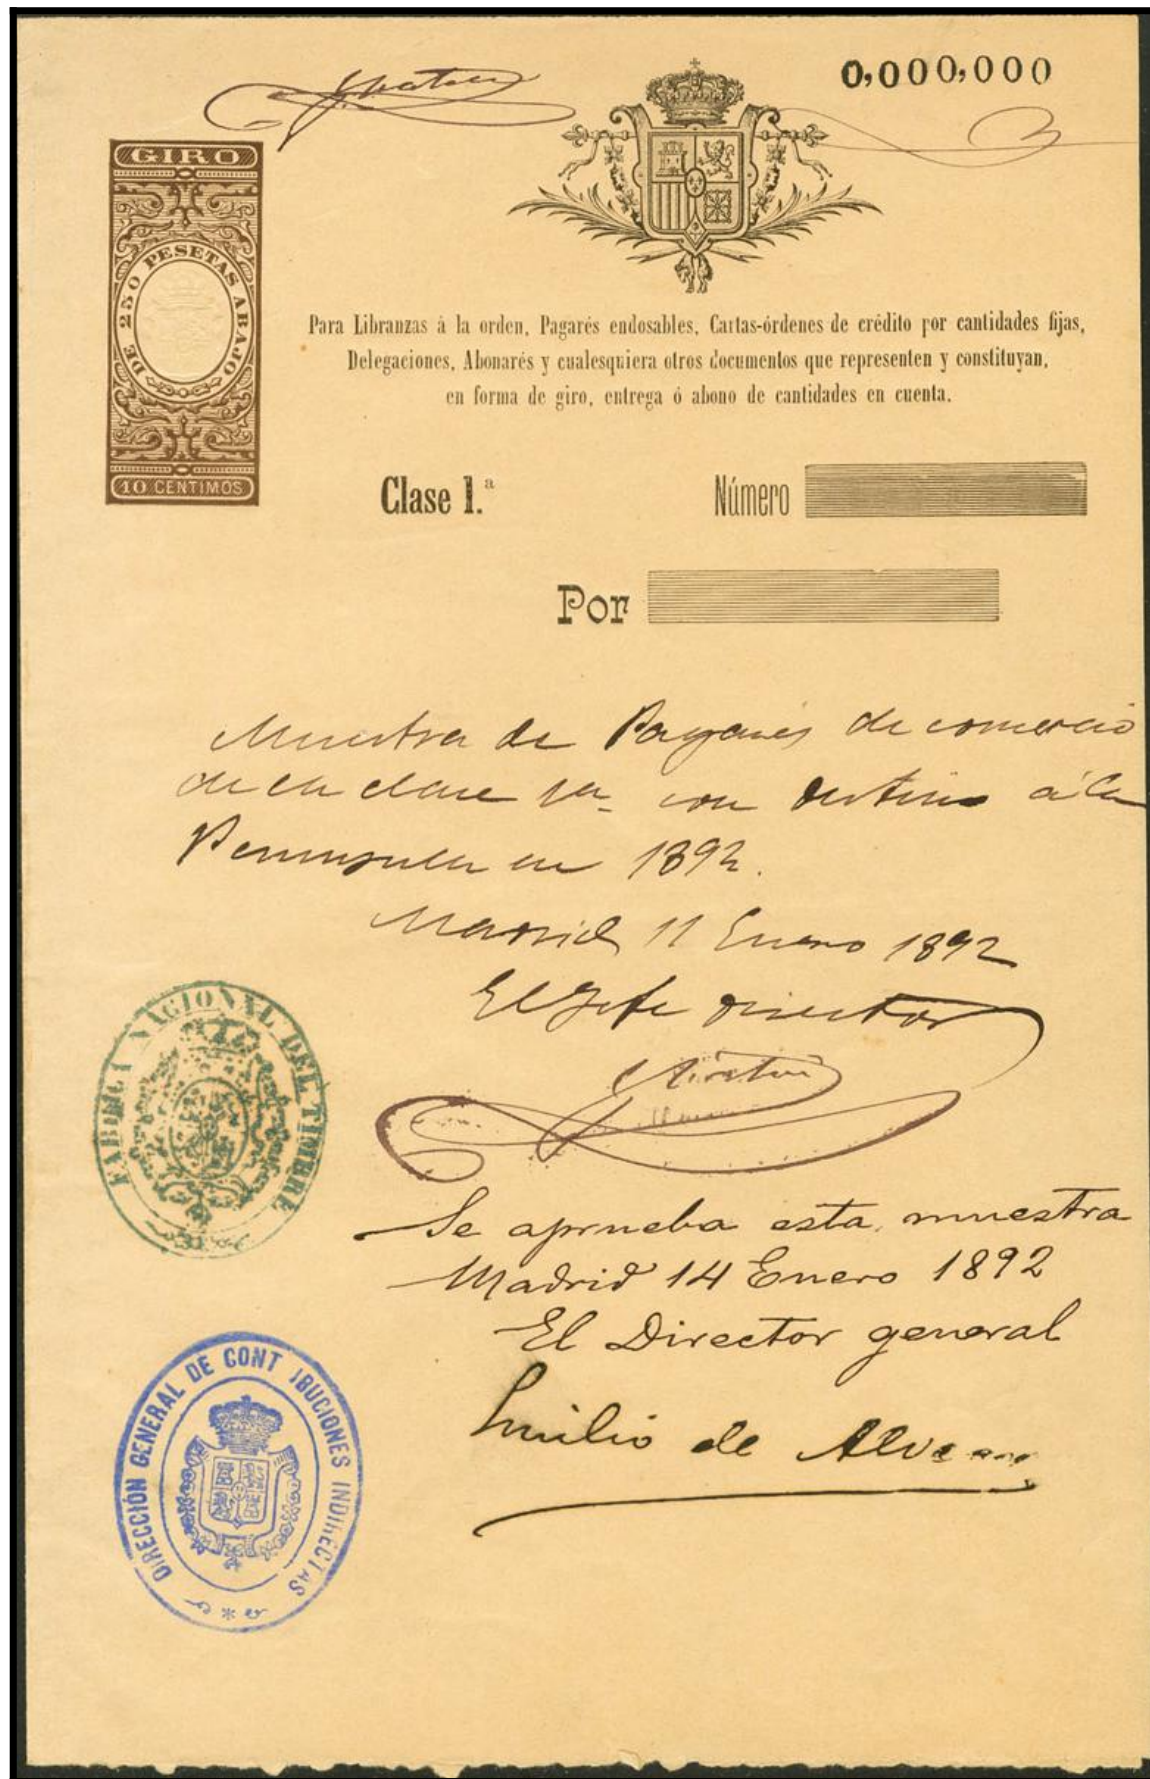 0,000,000
GIRO
DE 250 PESETAS ABAJO
10 CENTIMOS
Para Libranzas á la orden, Pagarés endosables, Cartas-órdenes de crédito por cantidades fijas,
Delegaciones, Abonarés y cualesquiera otros documentos que representen y constituyan,
en forma de giro, entrega ó abono de cantidades en cuenta.
Clase 1.ª
Número
Por
Muestra de Pagarés de comercio
de la clase 1ª con destino á la
Peninsula en 1892.
Madrid 11 Enero 1892
El Jefe Director
FABRICA NACIONAL DEL TIMBRE
Se aprueba esta muestra
Madrid 14 Enero 1892
El Director general
Emilio de
DIRECCIÓN GENERAL DE CONT IBUCIONES INDIRECTAS